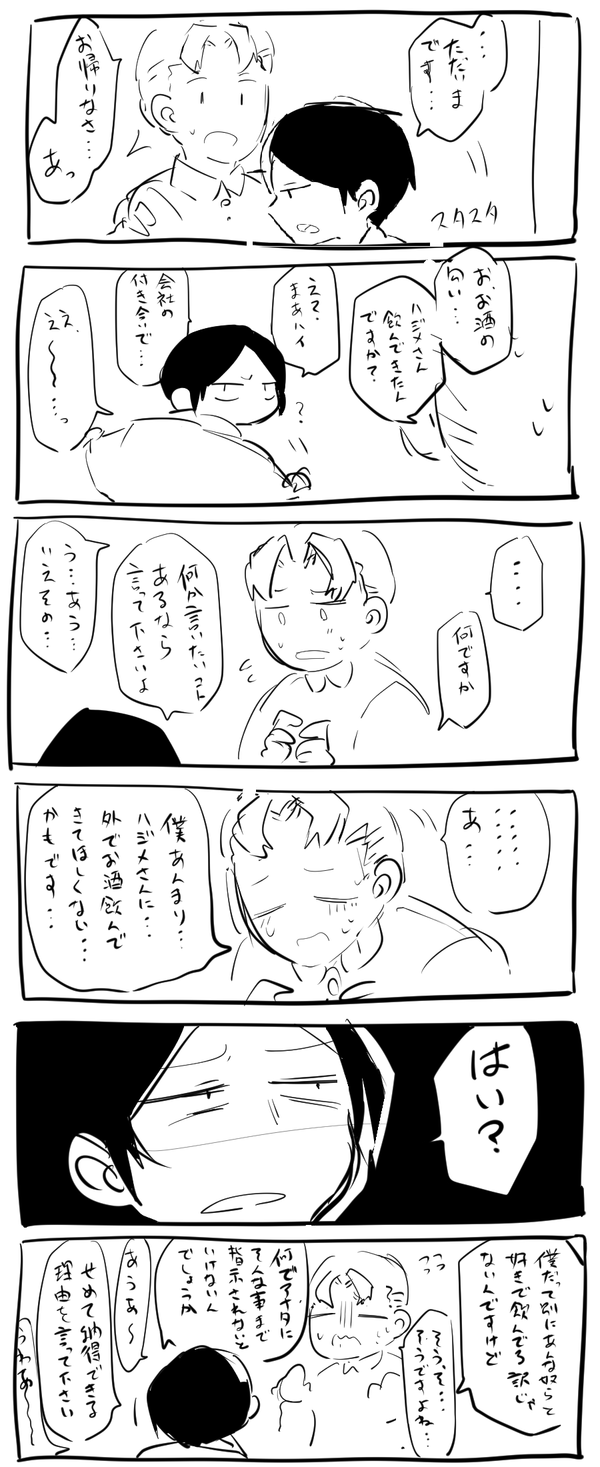 …ただいま
です…
スタスタ
お帰りなさ…
あっ
お、お酒の
匂い…
ハジメさん
飲んできたん
ですか?
ええ、
まあハイ
?
会社の
付き合いで…
ええ、
〜〜…っ
…
何ですか
何か言いたいコト
あるなら
言って下さいよ
う…あう…
いえその…
……
あ…
僕あんまり…
ハジメさんに…
外でお酒飲んで
きてほしくない…
かもです…
はい?
僕だって別にあんな奴らと
好きで飲んでる訳じゃ
ないんですけど
そうっそ…
そうですよね…
何でアナタに
そんな事まで
指示されないと
いけないん
でしょうか
あうあ〜
せめて納得できる
理由を言って下さい
うわあ〜